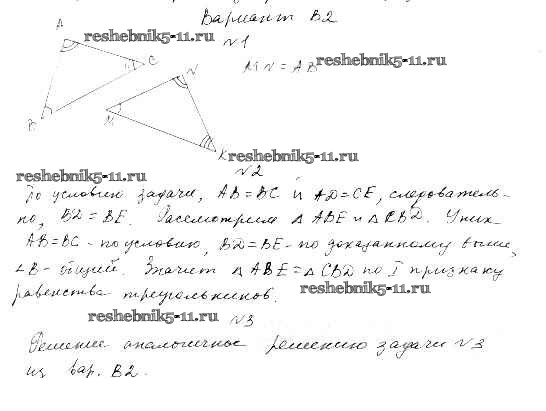 Вариант В2
reshebnik5-11.ru
N1
A
C
B
MN = AB reshebnik5-11.ru
N
M
K
reshebnik5-11.ru
reshebnik5-11.ru
N2
По условию задачи, AB=BC и AD=CE, следователь-
но, BD=BE. Рассмотрим △ ABE и △ CBD. У них
AB=BC - по условию, BD=BE - по доказанному выше,
∠B - общий. Значит △ ABE = △ CBD по I признаку
равенства треугольников. reshebnik5-11.ru
reshebnik5-11.ru
N3
Решение аналогичное решению задачи N3
из вар. В2.